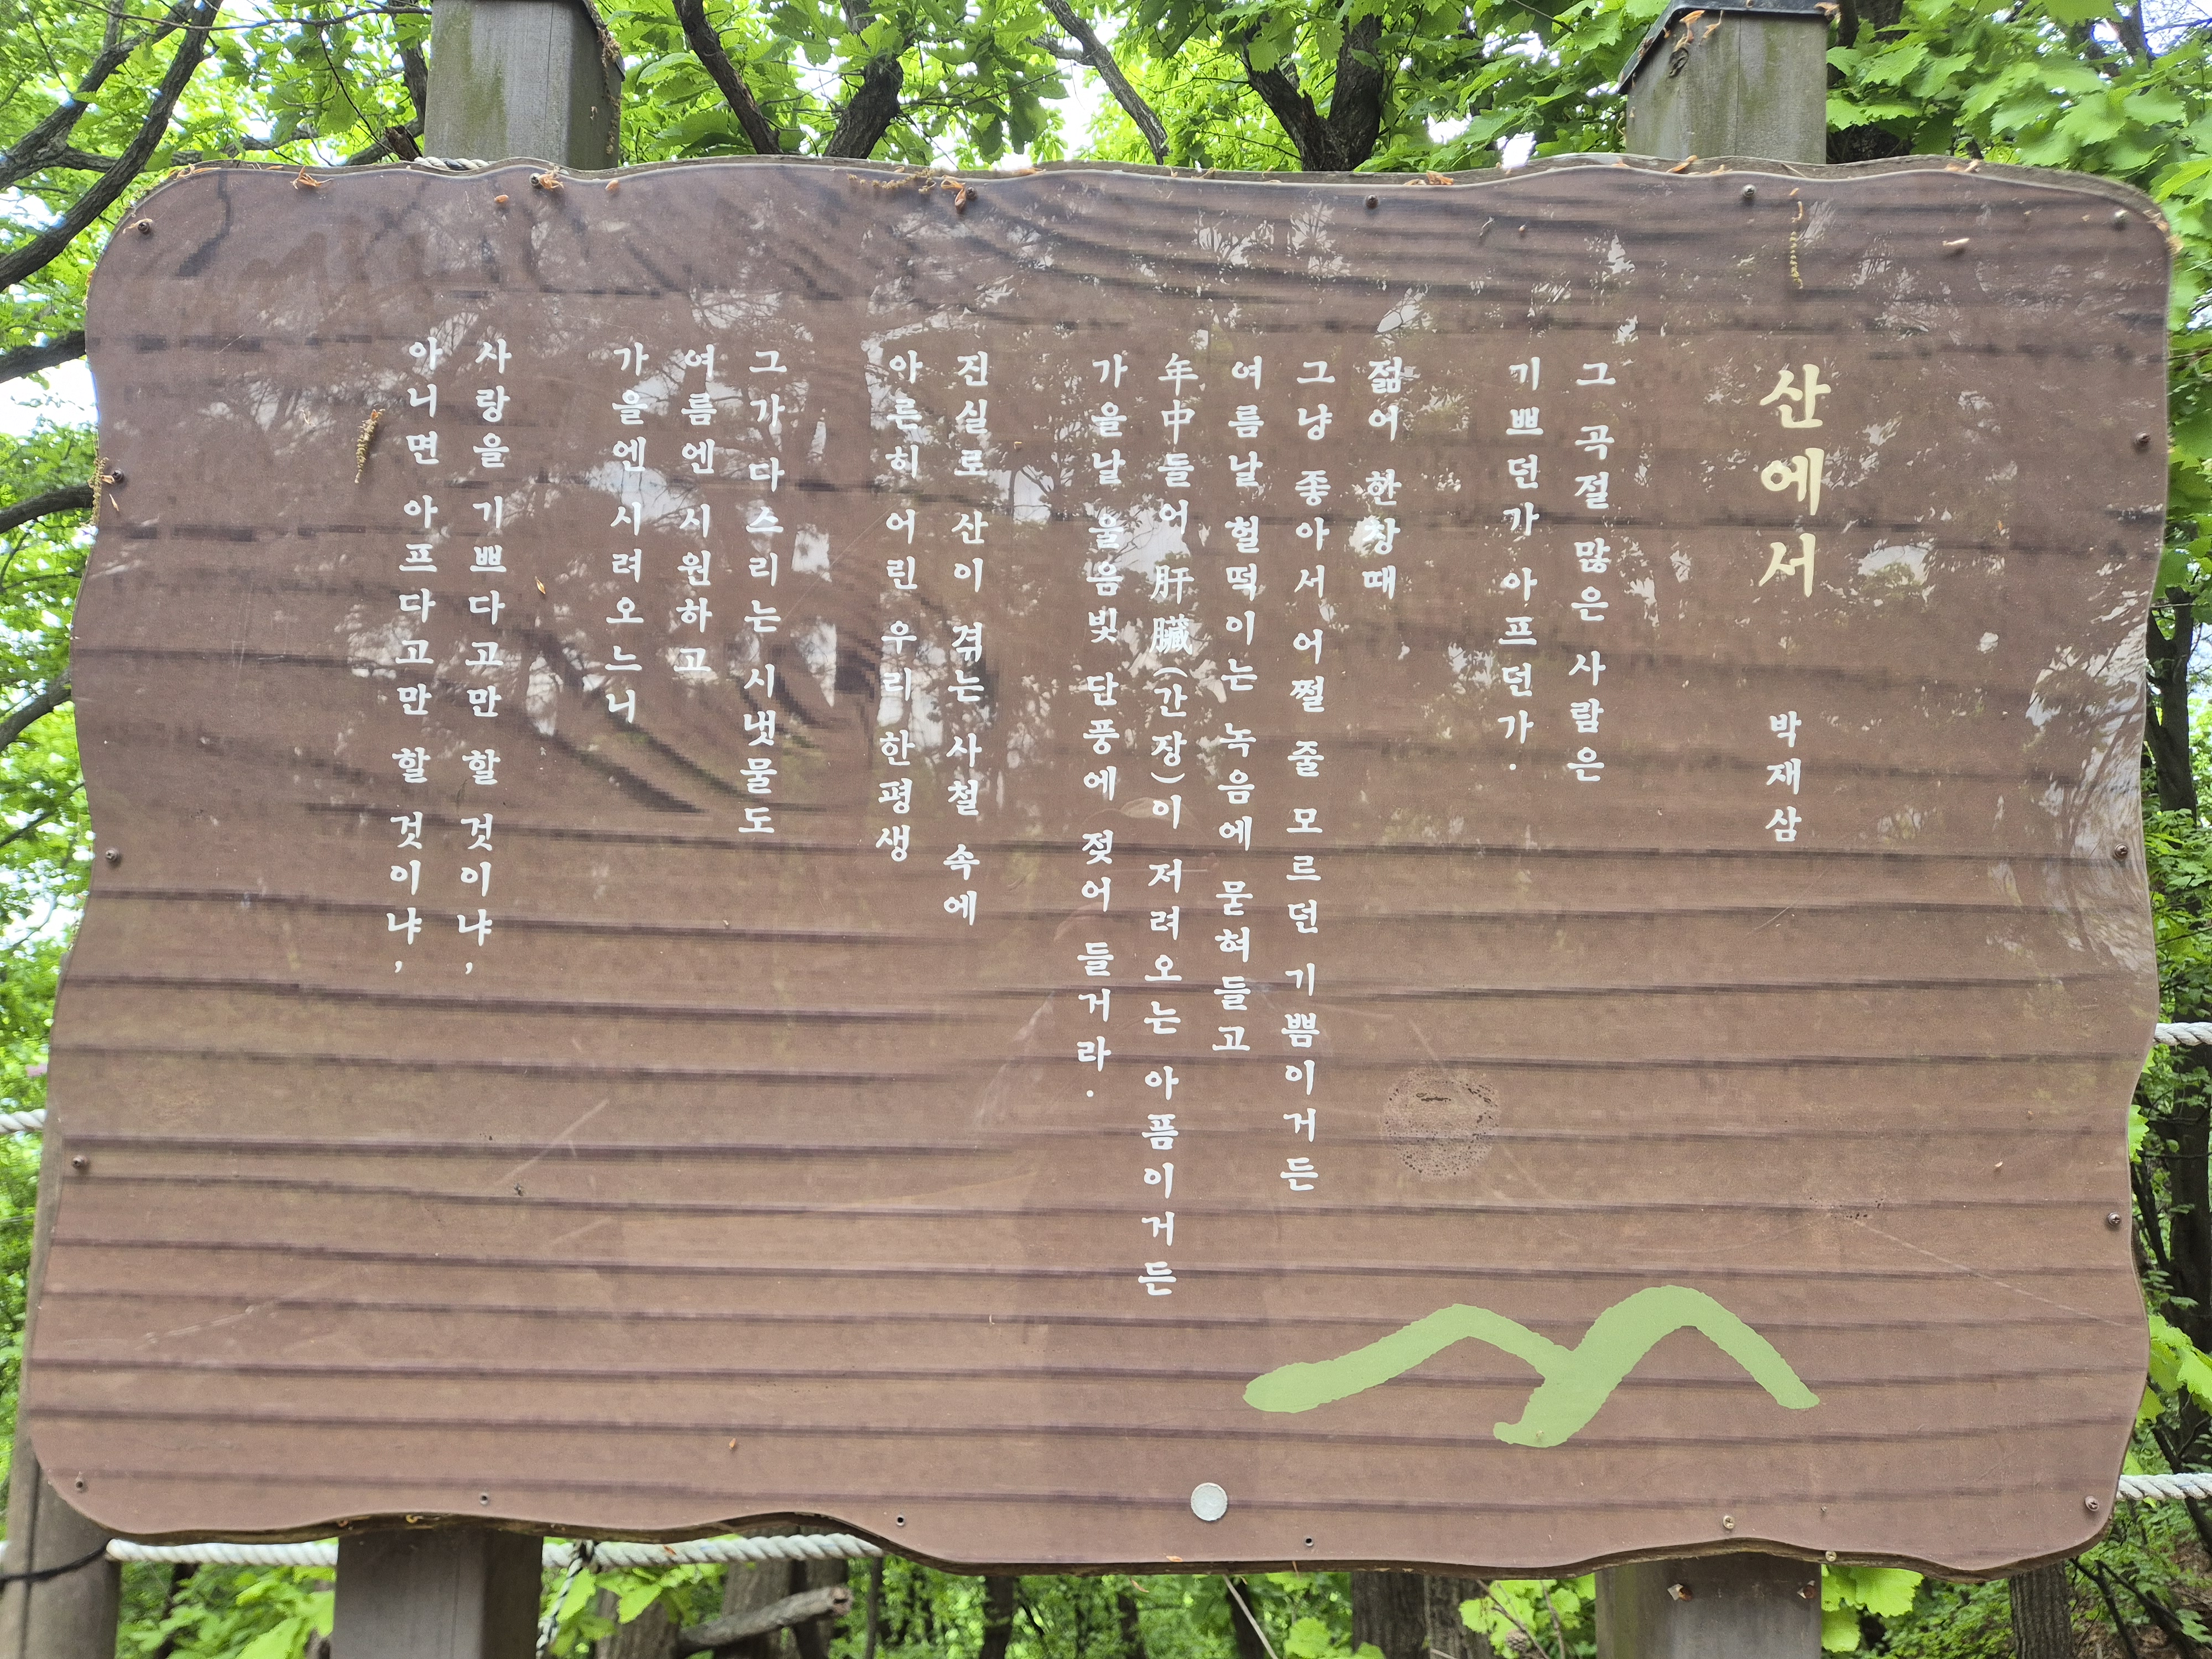 산에서
박재삼
그 곡절 많은 사람은
기쁘던가 아프던가.
젊어 한창때
그냥 좋아서 어쩔 줄 모르던 기쁨이거든
여름날 헐떡이는 녹음에 묻혀들고
年中들어 肝臟(간장)이 저려오는 아픔이거든
가을날 울음빛 단풍에 젖어 들거라.
진실로 산이 겪는 사철 속에
아른히 어린 우리 한평생
그가 다스리는 시냇물도
여름엔 시원하고
가을엔 시려오느니
사랑을 기쁘다고만 할 것이냐,
아니면 아프다고만 할 것이냐,